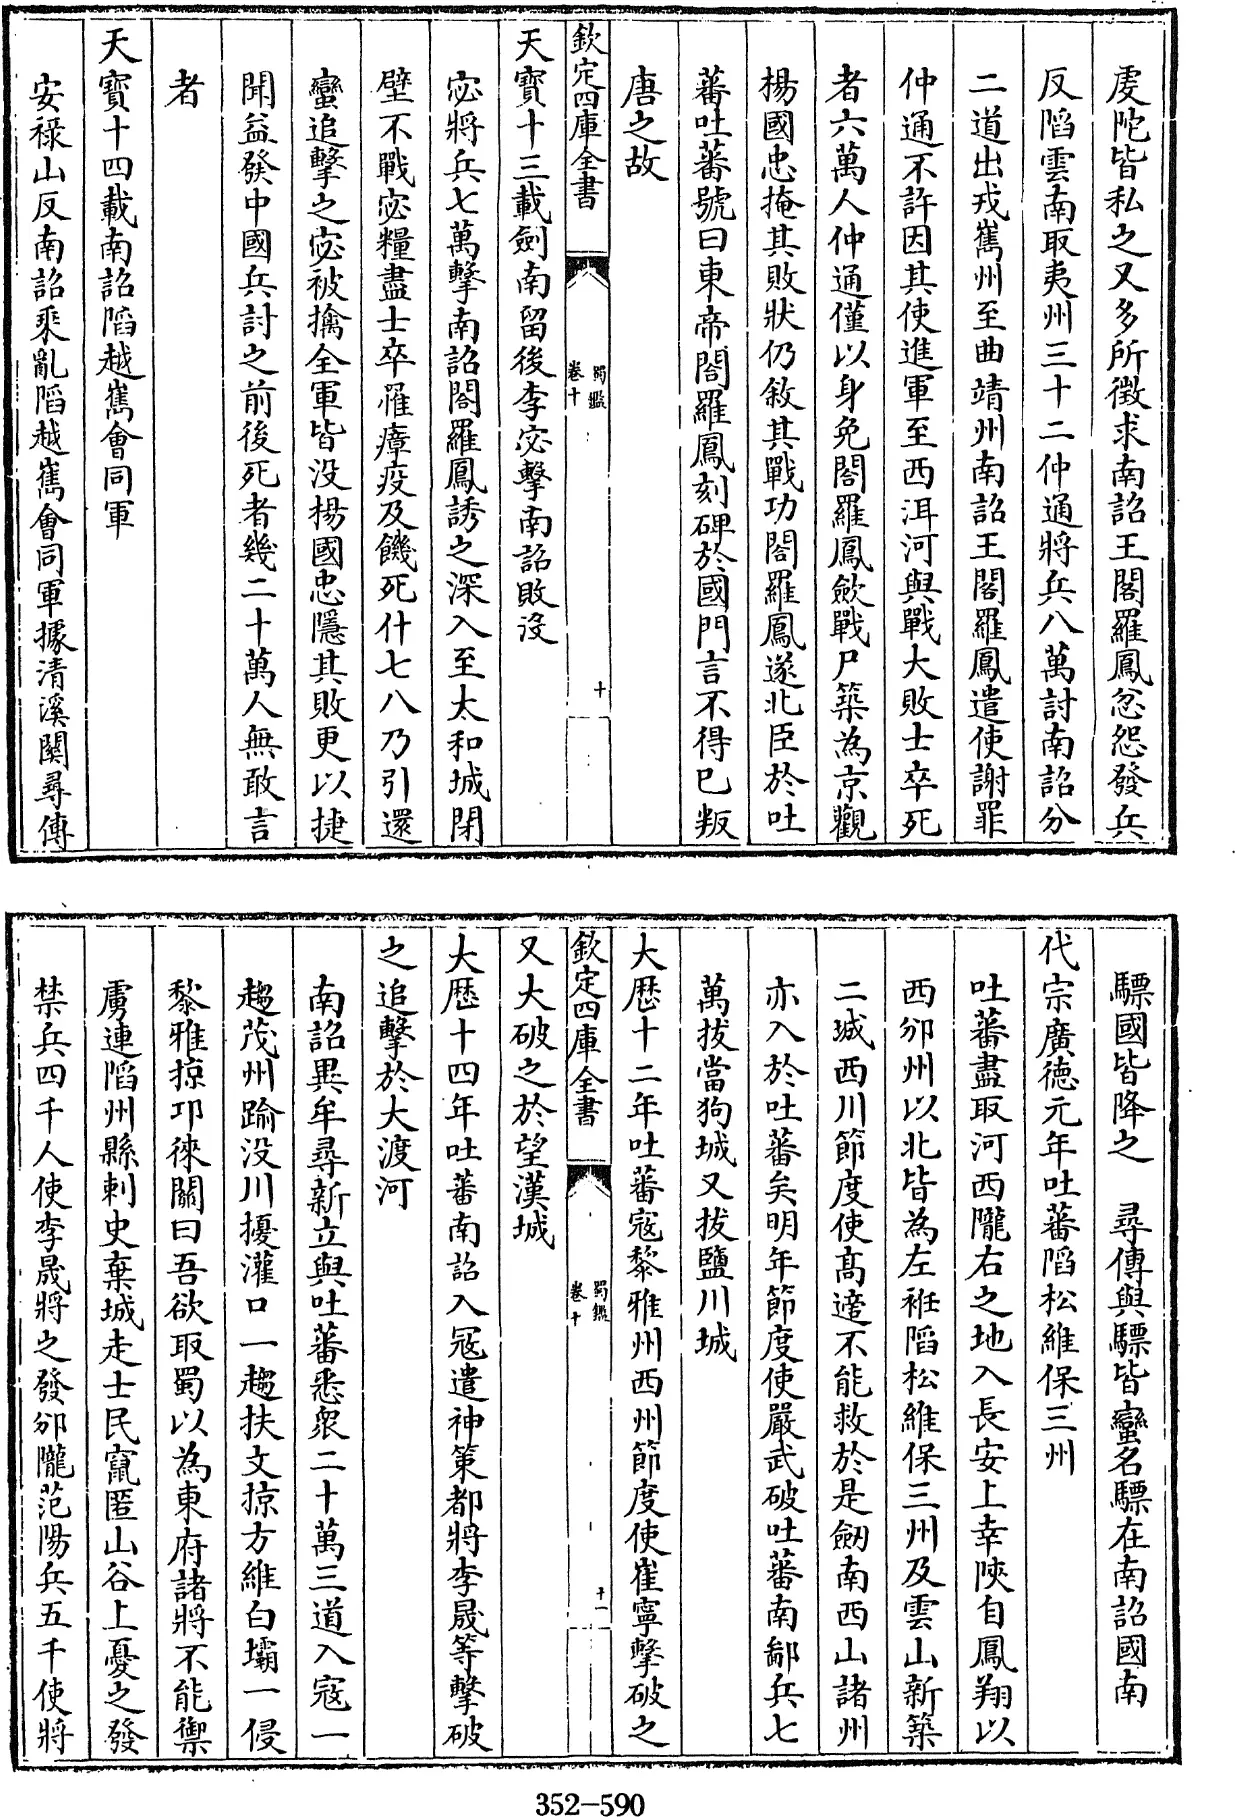 虔陀皆私之又多所徴求南詔王閤羅鳳忿怨發兵
反陷雲南取夷州三十二仲通將兵八萬討南詔分
二道出戎嶲州至曲靖州南詔王閤羅鳳遣使謝罪
仲通不許因其使進軍至西洱河與戰大敗士卒死
者六萬人仲通僅以身免閤羅鳳歛戰尸築為京觀
楊國忠掩其敗狀仍敘其戰功閤羅鳳遂北臣於吐
蕃吐蕃號曰東帝閤羅鳳刻碑於國門言不得已叛
唐之故
欽定四庫全書
蜀鑑
卷十
十
天寶十三載劍南留後李宓擊南詔敗沒
宓將兵七萬擊南詔閤羅鳳誘之深入至太和城閉
壁不戰宓糧盡士卒罹瘴疫及饑死什七八乃引還
蠻追擊之宓被擒全軍皆没楊國忠隱其敗更以捷
聞益發中國兵討之前後死者幾二十萬人無敢言
者
天寶十四載南詔陷越嶲會同軍
安禄山反南詔乘亂陷越嶲會同軍據清溪關尋傳
驃國皆降之　尋傳與驃皆蠻名驃在南詔國南
代宗廣徳元年吐蕃陷松維保三州
吐蕃盡取河西隴右之地入長安上幸陜自鳳翔以
西邠州以北皆為左袵陷松維保三州及雲山新築
二城西川節度使髙適不能救於是劒南西山諸州
亦入於吐蕃矣明年節度使嚴武破吐蕃南鄙兵七
萬拔當狗城又拔鹽川城
大厯十二年吐蕃寇黎雅州西州節度使崔寧擊破之
欽定四庫全書
蜀鑑
卷十
十一
又大破之於望漢城
大厯十四年吐蕃南詔入冦遣神策都將李晟等擊破
之追擊於大渡河
南詔異牟尋新立與吐蕃悉衆二十萬三道入寇一
趨茂州踰没川擾灌口一趨扶文掠方維白壩一侵
黎雅掠邛徠關曰吾欲取蜀以為東府諸將不能禦
虜連陷州縣刺史棄城走士民竄匿山谷上憂之發
禁兵四千人使李晟將之發邠隴范陽兵五千使將
352-590